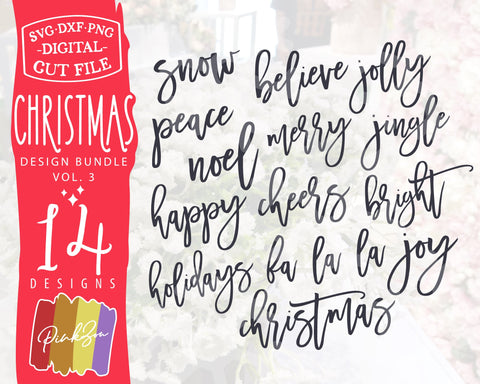 SVG·DXF·PNG
-DIGITAL-
CUT FILE
CHRISTMAS
DESIGN BUNDLE
VOL. 3
14
DESIGNS
PinkSou
snow believe jolly
peace merry jingle
noel
happy cheers bright
holidays fa la la la joy
christmas